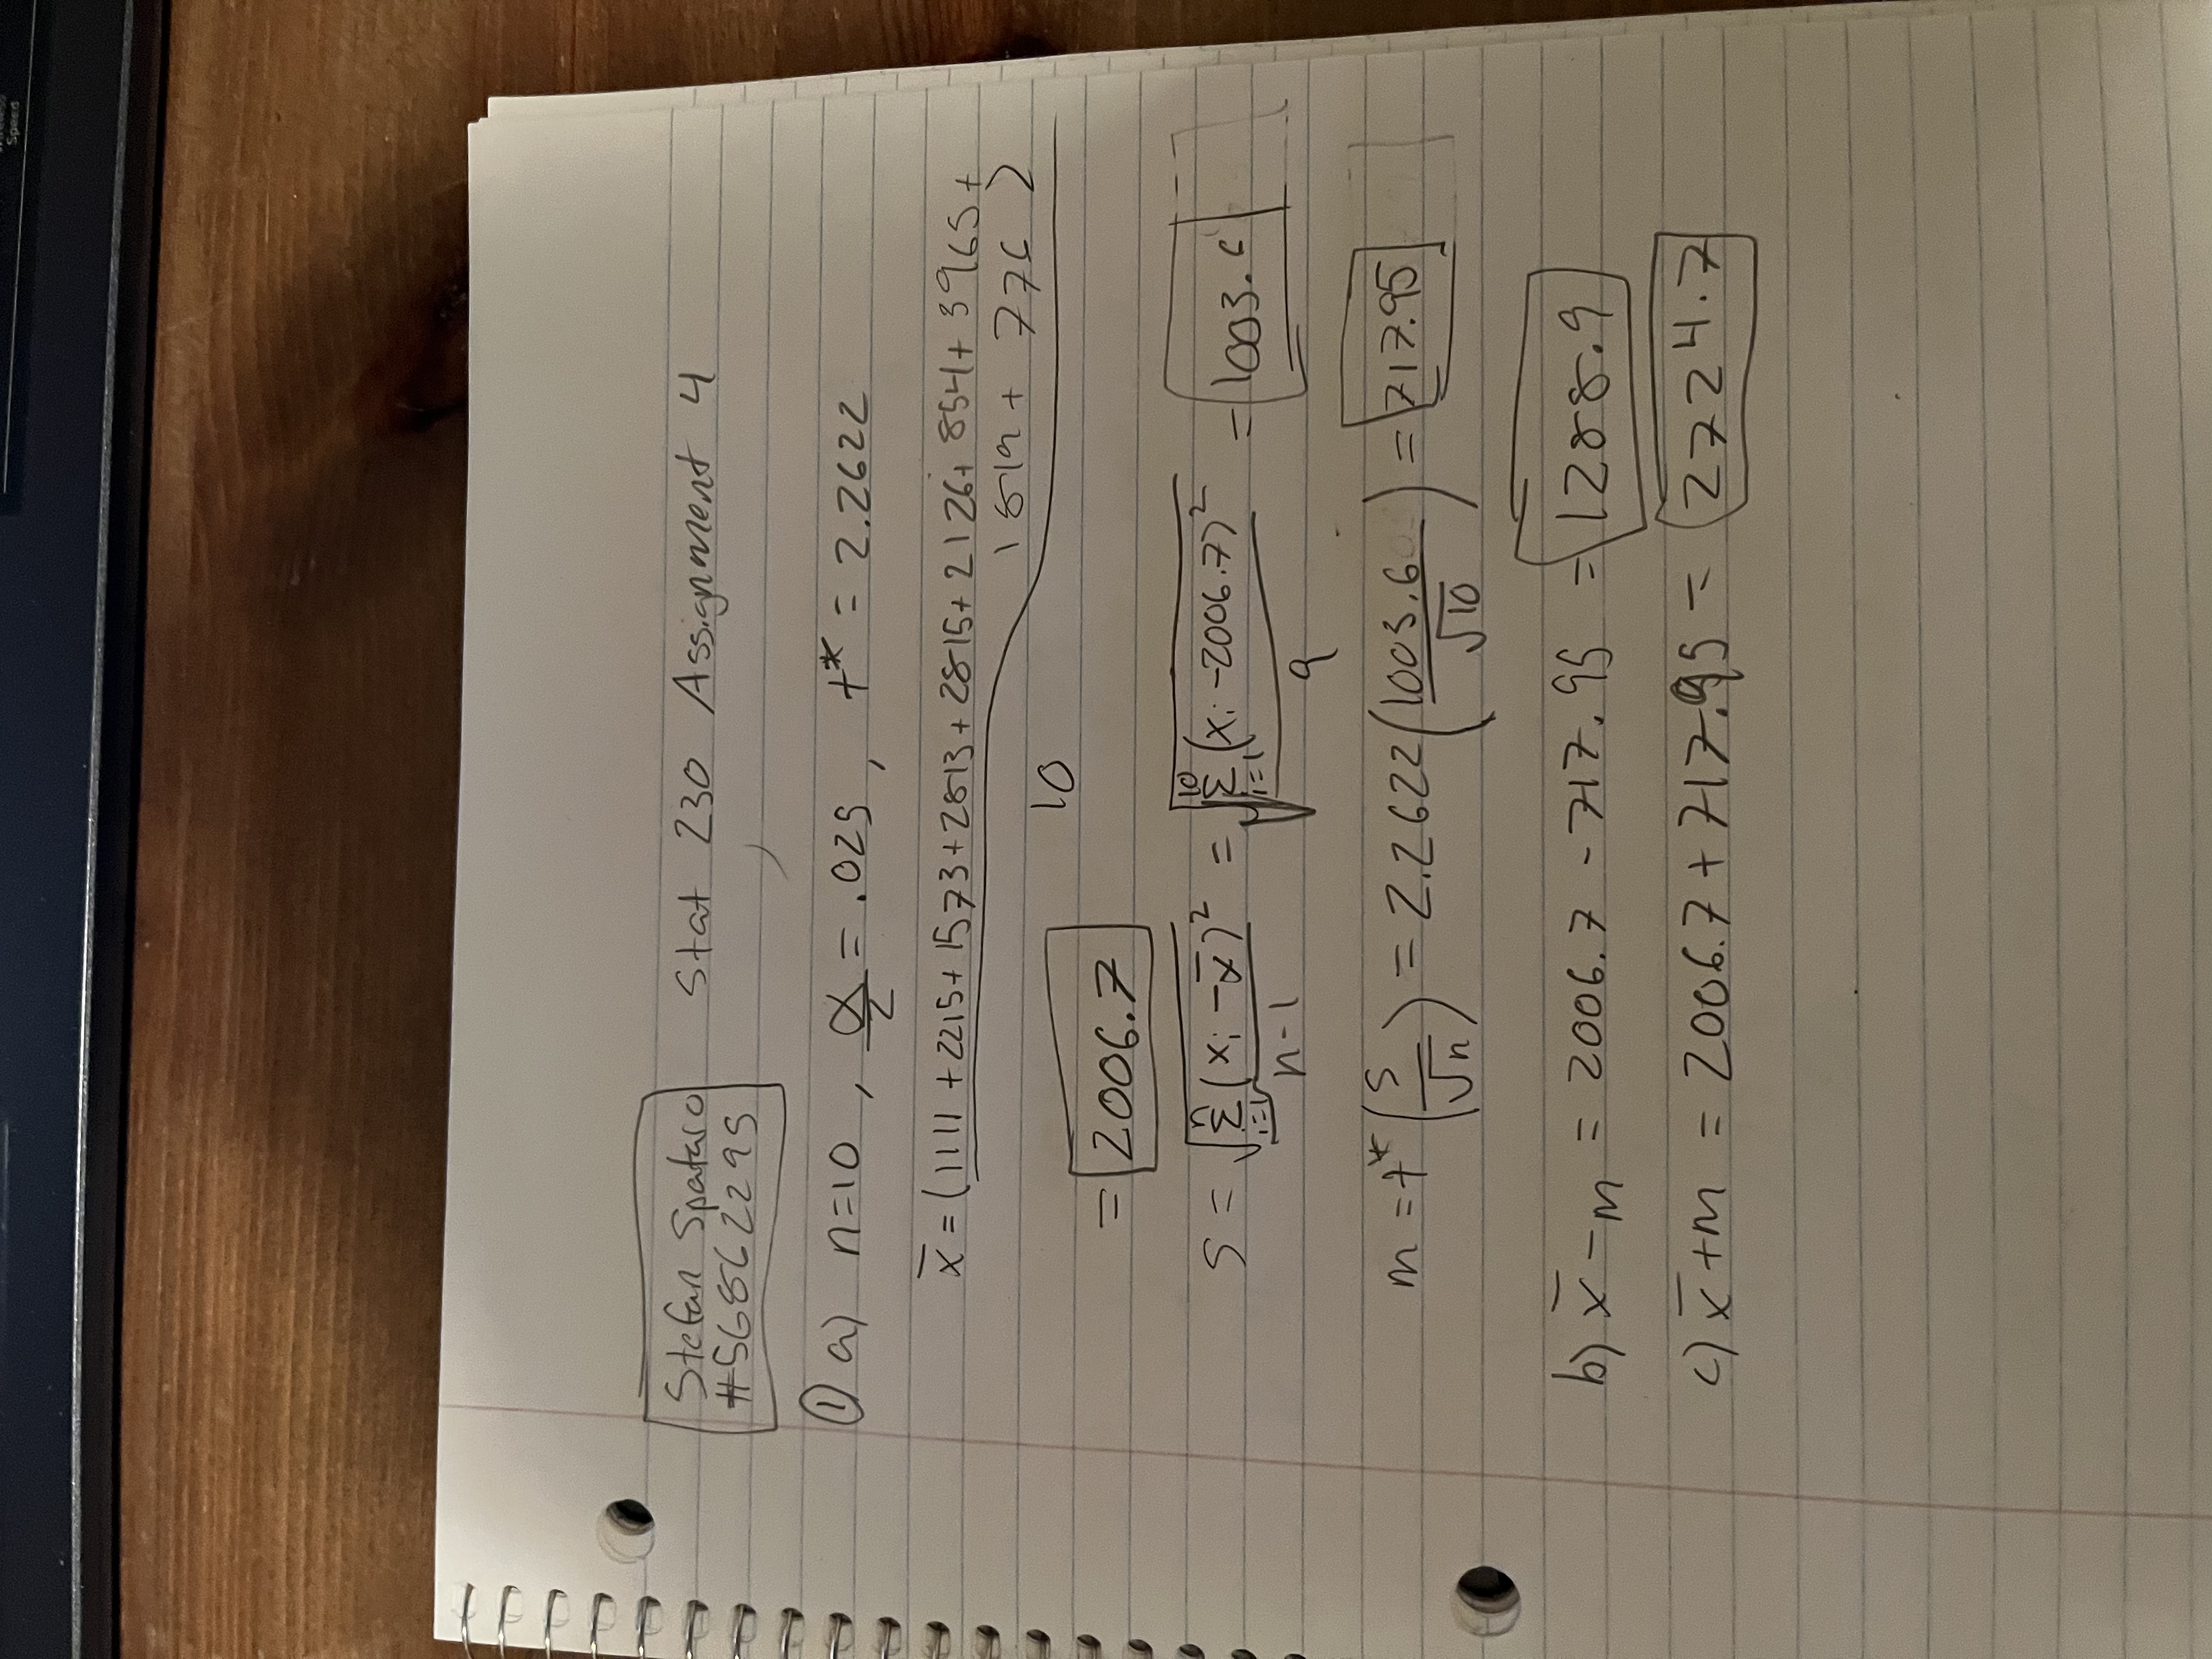 Wireless
Speed
Stefan Spataro
#56862295
Stat 230 Assignment 4
① a) n=10 , α/2 = .025 , t* = 2.2622
x̄ = (1111 + 2215 + 1573 + 2813 + 2815 + 2126 + 854 + 3965 +
1819 + 776)
10
= 2006.7
s = √(Σ_{i=1}^{n} (xᵢ - x̄)² / n-1) = √(Σ_{i=1}^{10} (xᵢ - 2006.7)² / 9) = 1003.6
m = t* (s/√n) = 2.2622 (1003.6/√10) = 717.95
b) x̄ - m = 2006.7 - 717.95 = 1288.9
c) x̄ + m = 2006.7 + 717.95 = 2724.7